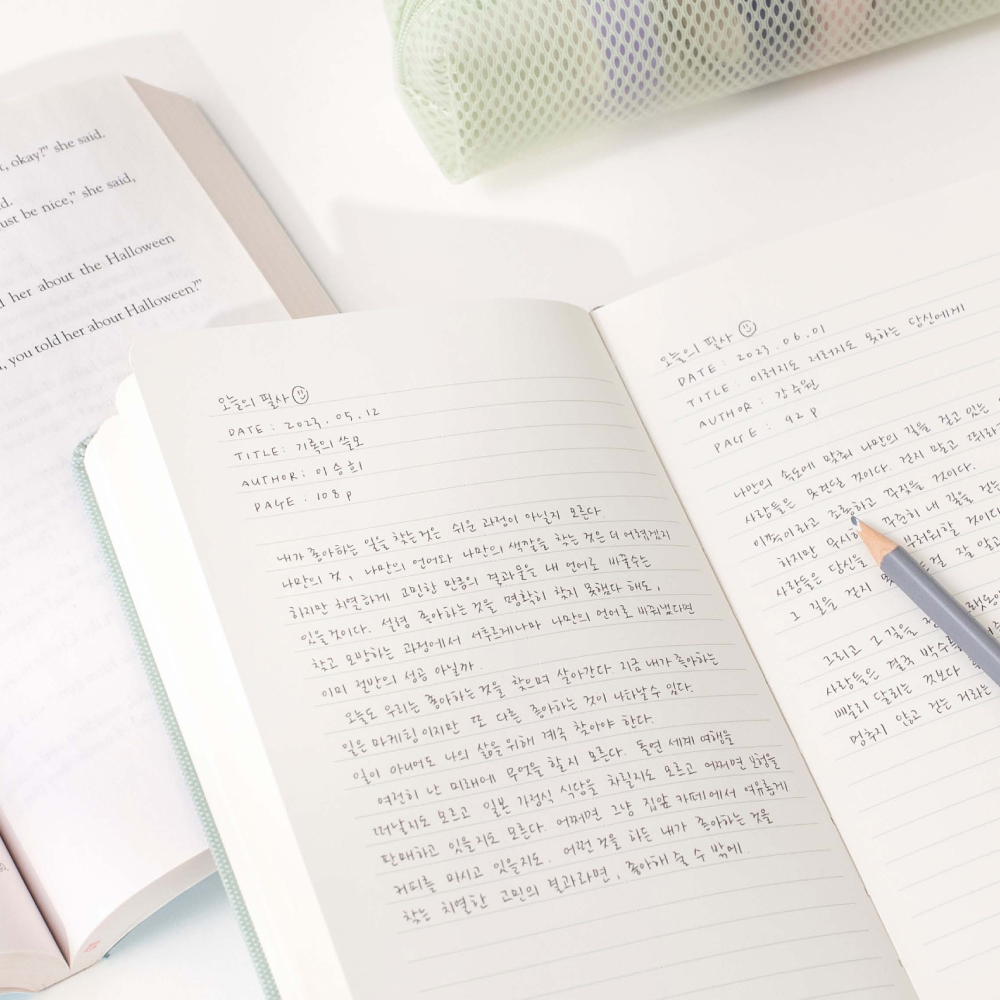 r, okay?" she said.
d.
ust be nice," she said,
d her about the Halloween
, you told her about Halloween?"
오늘의 필사
DATE : 2023. 05. 12
TITLE : 기록의 쓸모
AUTHOR : 이승희
PAGE . 108 p
내가 좋아하는 일을 찾는것은 쉬운 과정이 아닐지 모른다.
나만의 것, 나만의 언어와 나만의 색깔을 찾는 것은 더 어렵겠지
하지만 치열하게 고민한 만큼의 결과물을 내 언어로 바꿀수는
있을것이다. 설령 좋아하는 것을 명확히 찾지 못했다 해도,
찾고 모방하는 과정에서 서투르게나마 나만의 언어로 바꿔냈다면
이미 절반의 성공 아닐까.
오늘도 우리는 좋아하는 것을 찾으며 살아간다. 지금 내가 좋아하는
일은 마케팅이지만 또 다른 좋아하는 것이 나타날수 있다.
일이 아니어도 나의 삶을 위해 계속 찾아야 한다.
여전히 난 미래에 무엇을 할지 모른다. 돌연 세계 여행을
떠날지도 모르고 일본 가정식 식당을 차릴지도 모르고 어쩌면
판매하고 있을지도 모른다. 어쩌면 그냥 집앞 카페에서 여유롭게
커피를 마시고 있을지도. 어떤 것을 하든 내가 좋아하는 것을
찾는 치열한 고민의 결과라면, 좋아해 줄 수 밖에.
오늘의 필사
DATE : 2023. 06. 01
TITLE : 이러지도 저러지도 못하는 당신에게
AUTHOR : 강주원
PAGE : 92 p
나만의 속도에 맞춰 나만의 길을 걷고 있는
사람들은 못견딜 것이다. 걷지 말고 뛰라
이쪽이라고 조롱하고 꾸짖을 것이다.
하지만 꾸준히 내 길을 걷는
사람들은 당신을 부러워할 것이다
그 길을 걷지 잘 알고
그리고 그 길을
사람들은 결국 박수를
빨리 달리는 것보다
멈추지 않고 걷는 거라는